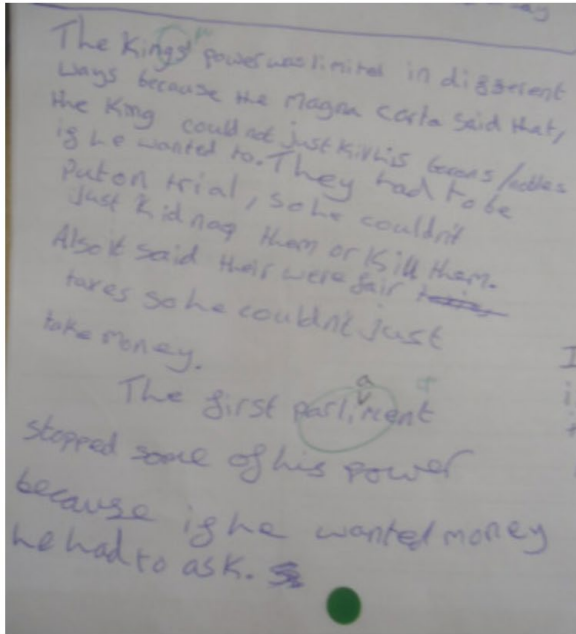 The Kings' power was limited in different
ways because the Magna Carta said that,
the King could not just kill his barons/nobles
if he wanted to. They had to be
put on trial, so he couldn't
just kidnap them or kill them.
Also it said their were fair
taxes so he couldn't just
take money.
The first parliment
a
stopped some of his power
because if he wanted money
he had to ask.